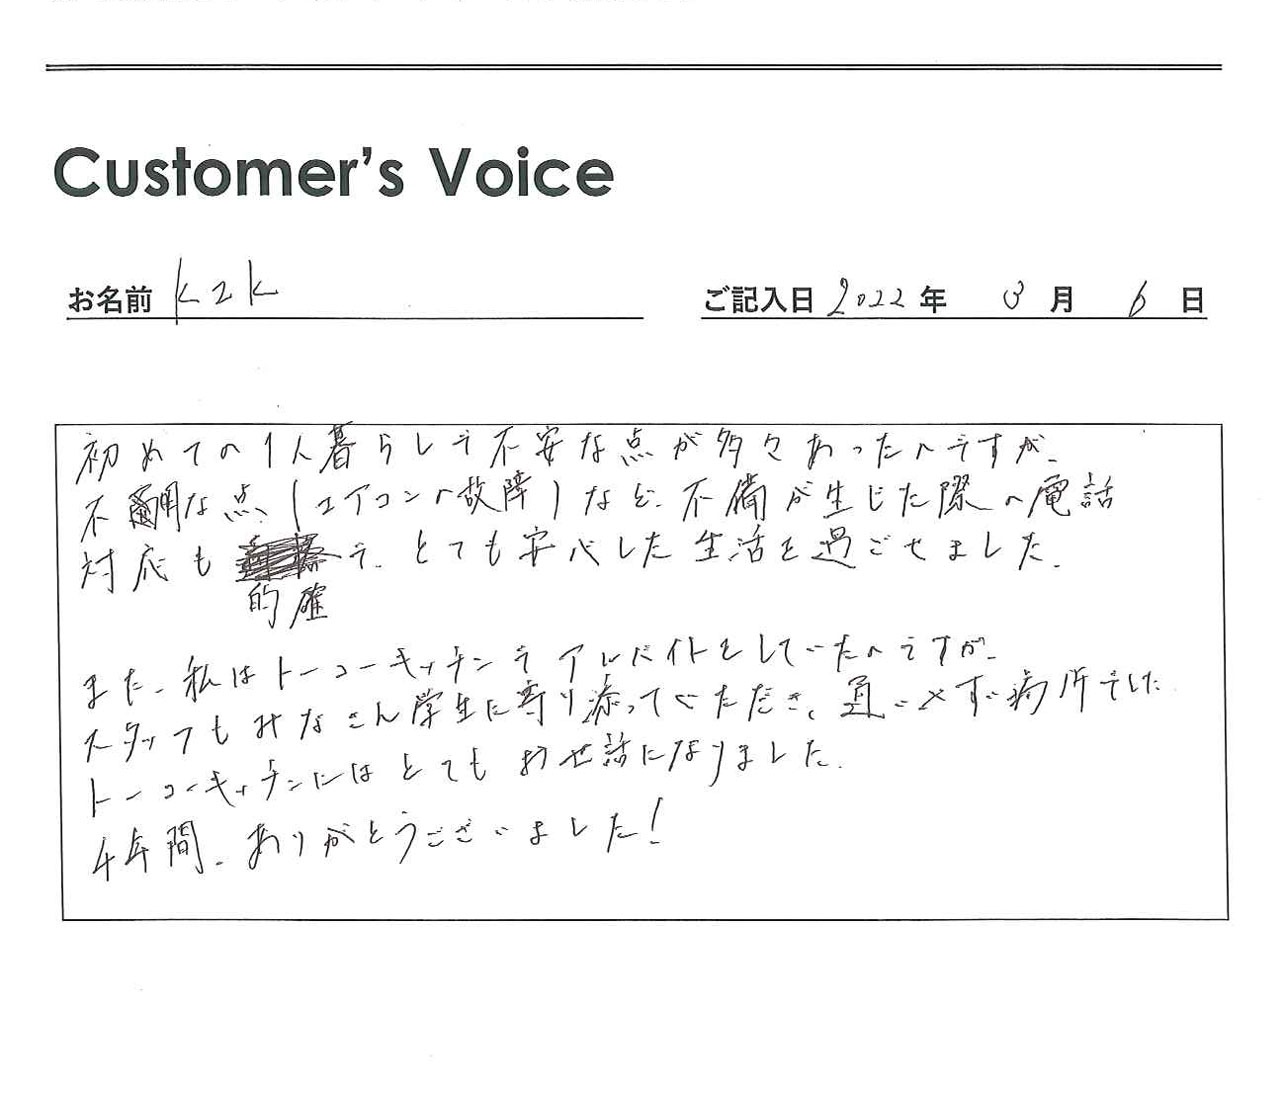 Customer's Voice
お名前 K2K
ご記入日 2022年 3月 6日
初めての1人暮らしで不安な点が多々あったのですが、
不明な点、(エアコンの故障)など、不備が生じた際の電話
対応も で、とても安心した生活を過ごせました。
的確
また、私はトーコーキッチンでアルバイトをしていたのですが、
スタッフもみなさん学生に寄り添っていただき、通いやすい場所でした
トーコーキッチンにはとてもお世話になりました。
4年間、ありがとうございました!